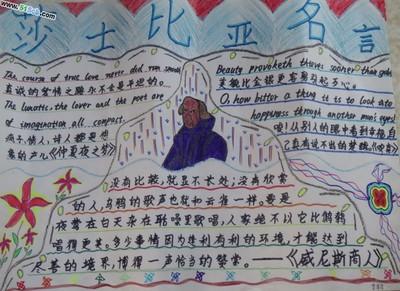 www.51fob.com
莎士比亚名言
The course of true love never did run smooth
真诚的爱情之路永不会是平坦的。
The lunatic, the lover and the poet are
of imagination all compact.
疯子,情人,诗人都是想
象的产儿《仲夏夜之梦》
Beauty provoketh thieves sooner than gold
美貌比金银更容易引起歹心
O, how bitter a thing it is to look into
happiness through another man's eyes!
唉!从别人的眼中看到幸福,自
己真有说不出的
没有比较,就显不长处;没有欣赏
的人,乌鸦的歌声也就和云雀一样。要是
夜莺在白天杂在聒噪里歌唱,人家绝不以它比鹪鹩
唱得更美。多少事情因为逢到有利的环境,才能达到
尽善的境界,博得一声恰当的赞赏。——《威尼斯商人》